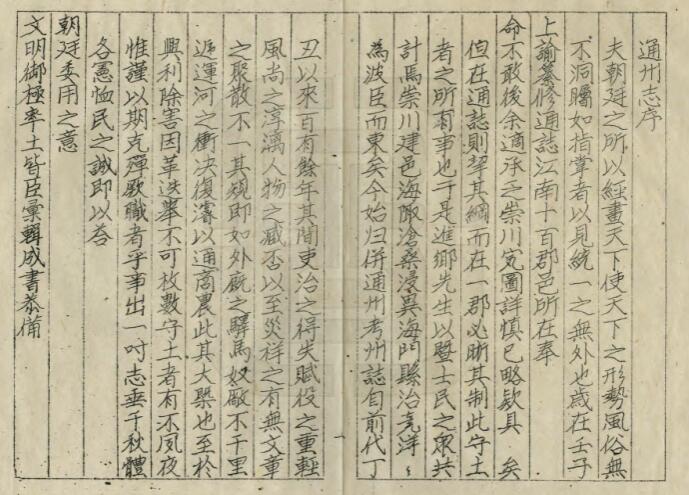 通州志序
夫朝廷之所以經畫天下使天下之形勢風俗無
不洞矚如指掌者以見統一之無外也歲在壬子
上諭纂修通誌江南十百郡邑所在奉
命不敢後余適承乏崇川寃圖詳慎已略欵具 矣
但在通誌則挈其綱而在一郡必晰其制此守土
者之所有事也于是進鄉先生以暨士民之眾共
計焉崇川建邑海陬滄桑浸異海門縣治竟洋ミ
為波臣而東矣今始归併通州考州誌自前代丁
丑以來百有餘年其間吏治之得失賦役之重輕
風尚之淳漓人物之臧否以至災祥之有無文章
之聚散不一其規即如外廐之驛馬奴厰不千里
逓運河之衝決復濬以通商農此其大槩也至於
興利除害因革迭舉不可枚數守土者有不夙夜
惟謹以期克殫厥職者乎事出一吋志垂千秋體
各憲恤民之誠即以荅
朝廷委用之意
文明御極率土皆臣彙輯成書恭備